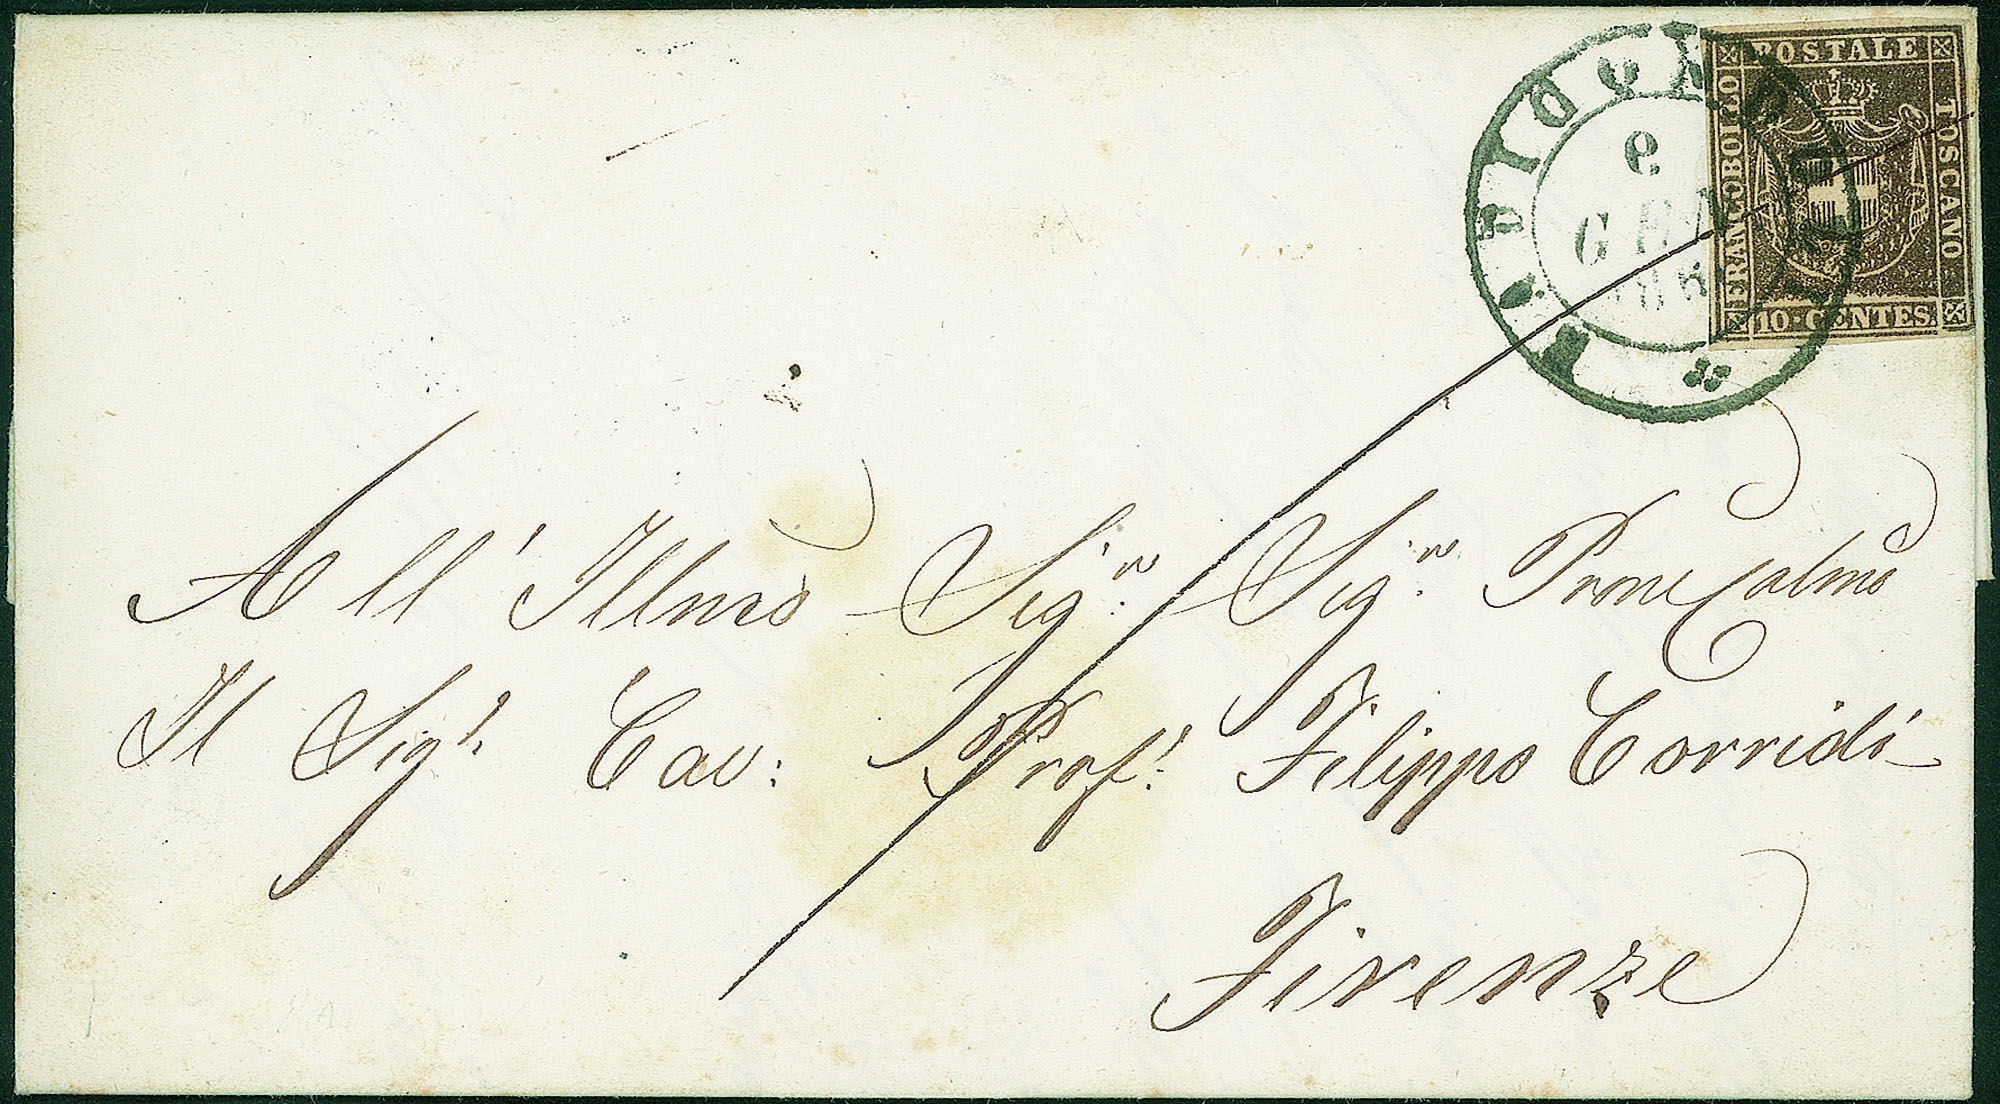 FRANCOBOLLO POSTALE TOSCANO
10 CENTES
e
GEN
186
All' Illmo Sigr. Sigr. Prone Colmo
Il Sigr. Cav: Profr. Filippo Corridi
Firenze